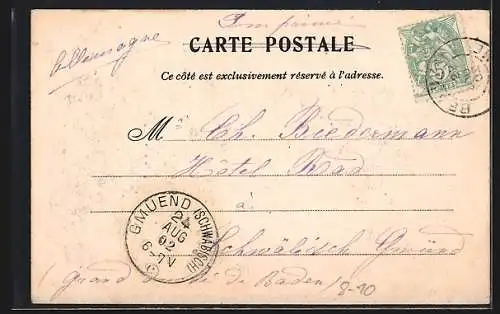 Imprimé
Allemagne
CARTE POSTALE
Ce côté est exclusivement réservé à l'adresse.
M Ch. Biedermann
Hôtel Rad
à
Schwäbisch Gmünd
(Grand de Baden)
GMUEND (SCHWÄBISCH)
24
AUG
02
6-7V
8-10